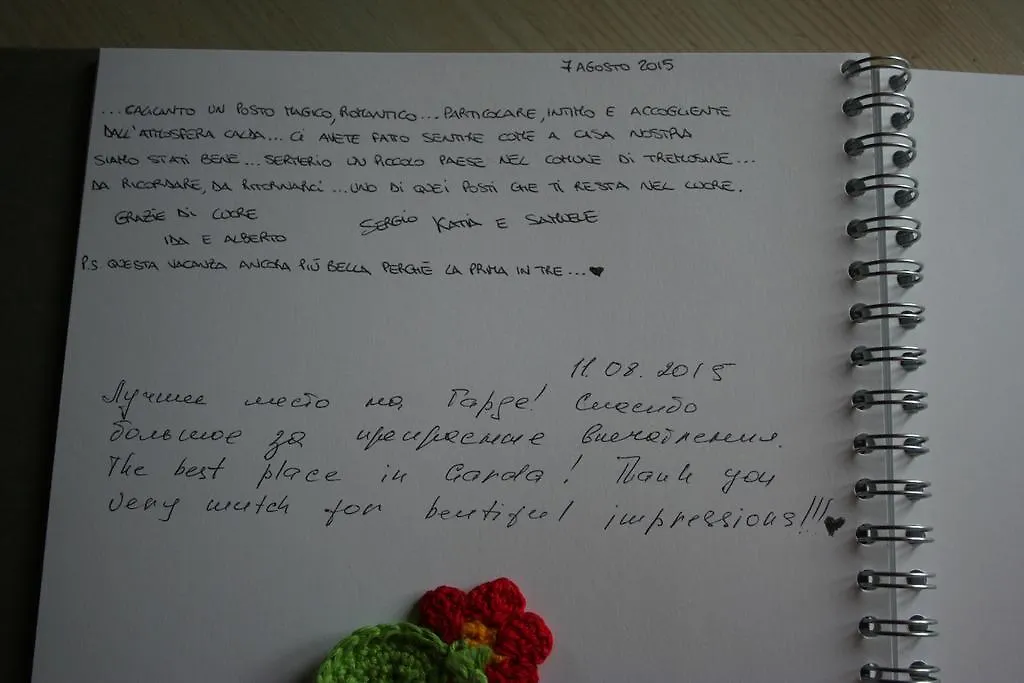 7 AGOSTO 2015
... CHE INCANTO UN POSTO MAGICO, ROMANTICO... PARTICOLARE, INTIMO E ACCOGLIENTE
DALL'ATMOSFERA CALDA... CI AVETE FATTO SENTIRE COME A CASA NOSTRA
SIAMO STATI BENE... SERMERIO UN PICCOLO PAESE NEL COMUNE DI TREMOSINE...
DA RICORDARE, DA RITORNARCI... UNO DI QUEI POSTI CHE TI RESTA NEL CUORE.
GRAZIE DI CUORE
SERGIO KATIA E SAMUELE
IDA E ALBERTO
P.S. QUESTA VACANZA ANCORA PIÙ BELLA PERCHÈ LA PRIMA IN TRE... ♥
11.08.2015
Лучшее место на Гарде! Спасибо
большое за прекрасные впечатления.
The best place in Garda! Thank you
very mutch for beutiful impressions!!! ♥